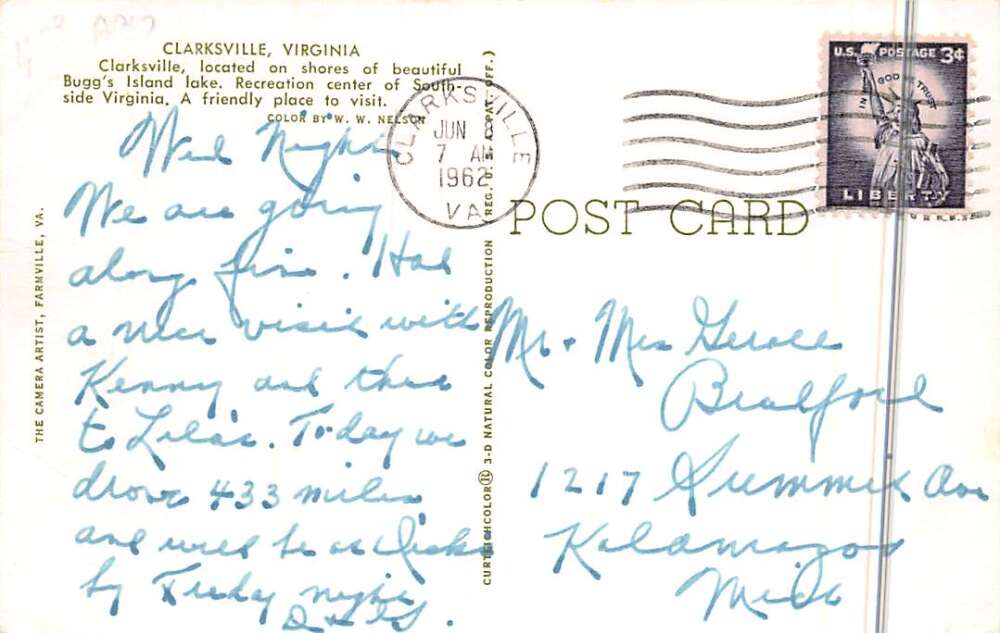 CLARKSVILLE, VIRGINIA
Clarksville, located on shores of beautiful
Bugg's Island lake. Recreation center of South-
side Virginia. A friendly place to visit.
COLOR BY W. W. NELSON
Wed Night
We are going
along fine. Had
a nice visit with
Kenny and then
to Lela's. Today we
drove 433 miles
and will be at Dicks
by Friday night
THE CAMERA ARTIST, FARMVILLE, VA.
CURTEICHCOLOR 3-D NATURAL COLOR REPRODUCTION (REG. U.S.A. PAT. OFF.)
CLARKSVILLE
JUN
7 AM
1962
VA
U.S. POSTAGE 3¢
IN GOD WE TRUST
LIBERTY
POST CARD
Mr + Mrs
Bradford
1217 Summit Ave
Kalamazoo
Mich